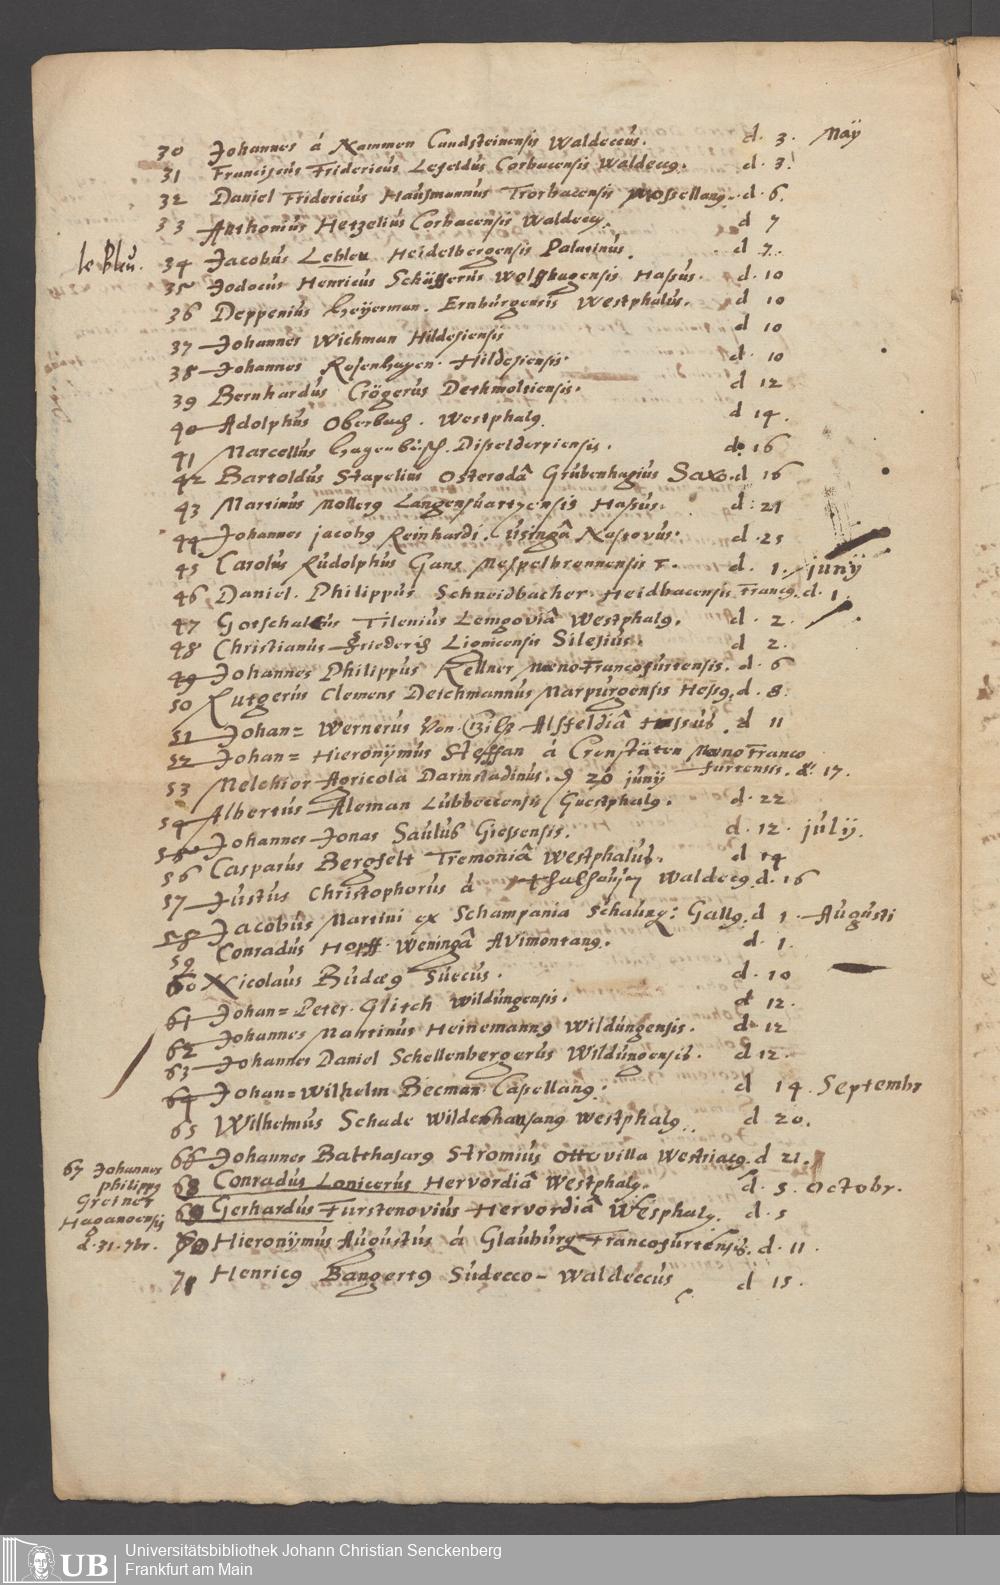 30 Johannes á Nammen Candsteinensis Waldeccus. d. 3. Maÿ
31 Franciscus Fridericus Lefeldus Corbacensis Waldecc9. d. 3.
32 Daniel Fridericus Hausmannus Trorbacensis Mosellan9. d. 6
33 Anthonius Hetzelius Corbacensis Waldecc9. d 7
le Bleu.
34 Jacobus Lebleu Heidelbergensis Palatinus. d 7.
35 Jodocus Henricus Schäfferus Wolffhagensis Hassus. d. 10
36 Deppenius Heÿerman. Ernburgensis Westphalus. d 10
37 Johannes Wichman Hildesiensis d 10
38 Johannes Rosenhagen. Hildesiensis. d. 10
39 Bernhardus Crögerus Dethmolsiensis. d 12
40 Adolphus Oberbech. Westphal9 d 14.
41 Marcellus Hagenbusch. Disselderpiensis. d. 16
42 Bartoldus Stapelius Osterodâ Grubenhagius Saxo. d 16
43 Martinus Moller9 Langensuartzensis Hassus. d. 21
44 Johannes jacob9 Reinhardi. Usingâ Nassovus. d. 25
45 Carolus Rudolphus Gans Mespelbrennensis F. d. 1. junÿ
46 Daniel. Philippus Schneidbacher Heidbacensis Franc9. d. 1.
47 Gotschalcus Tilenius Lemgoviâ Westphal9. d. 2.
48 Christianus Friederich Lignicensis Silesius. d 2.
49 Johannes Philippus Kellner Mœno Francofurtensis. d. 6
50 Rutgerus Clemens Deichmannus Marpurgensis Hess9. d. 8.
51 Johan= Wernerus Von Hassus. d 11
52 Johan= Hieronÿmus Steffan á Cronstäten Mœno Franco
furtensis. d. 17.
53 Melchior Agricola Darmstadinus. d 20 junÿ
54 Albertus Aleman Lubbeccensis Guestphal9. d. 22
55 Johannes Jonas Saulus Giessensis. d. 12. julÿ.
56 Casparus Bergfelt Tremoniâ Westphalus. d 14
57 Justus Christophorus á Waldecc9. d. 16
58 Jacobus Martini ex Schampania Gall9. d 1. Augusti
59 Conradus Hopff. Weningâ Avimontan9. d. 1.
60 Nicolaus Budæ9 Suecus. d. 10
61 Johan= Peter. Glitch Wildungensis. d 12.
62 Johannes Martinus Heinemann9 Wildungensis. d. 12
63 Johannes Daniel Schellenbergerus Wildungensis. d 12.
64 Johan= Wilhelm Becman. Casellan9. d 14. Septembr
65 Wilhelmus Schade Wildeshausan9 Westphal9. d 20.
66 Johannes Balthasar9 Stromius Ottovilla Westriac9. d 21.
67 Johannes
philipp9
Greiner
Haganoensis
d. 31. 7br.
68 Conradus Lonicerus Hervordiâ Westphal9. d. 5. Octobr.
69 Gerhardus Furstenovius Hervordiâ Wesphal9. d. 5
70 Hieronÿmus Augustus á Glauburg Francofurtensis. d. 11.
71 Henric9 Bangert9 Sudecco-Waldeccus d 15.
UB Universitätsbibliothek Johann Christian Senckenberg
Frankfurt am Main